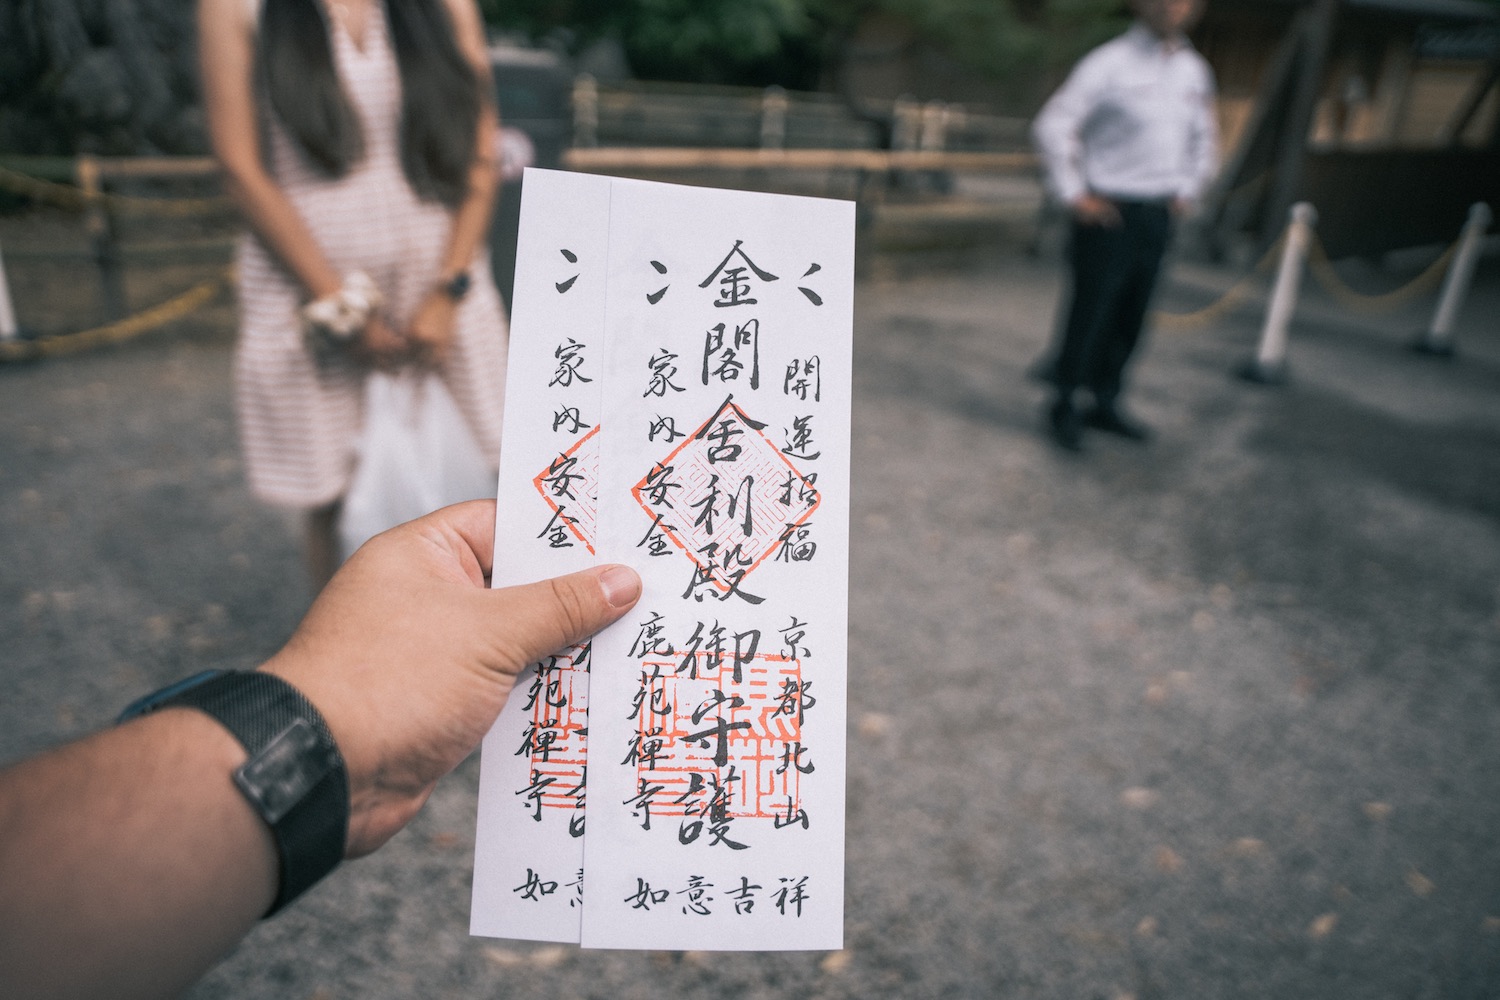 開運招福
京都北山
金閣舎利殿御守護
家内安全
鹿苑禪寺
如意吉祥
家内安全
苑禪寺
如